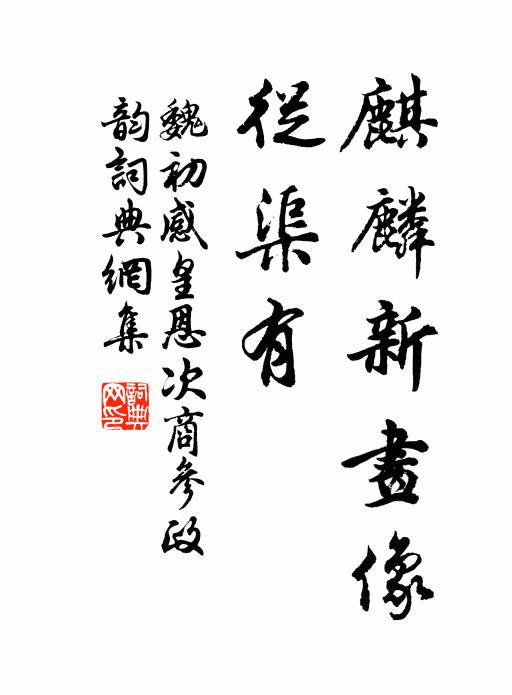 麒麟新畫像
從渠有
魏初感皇恩次商參政
韵詞典網集
詞典
网印